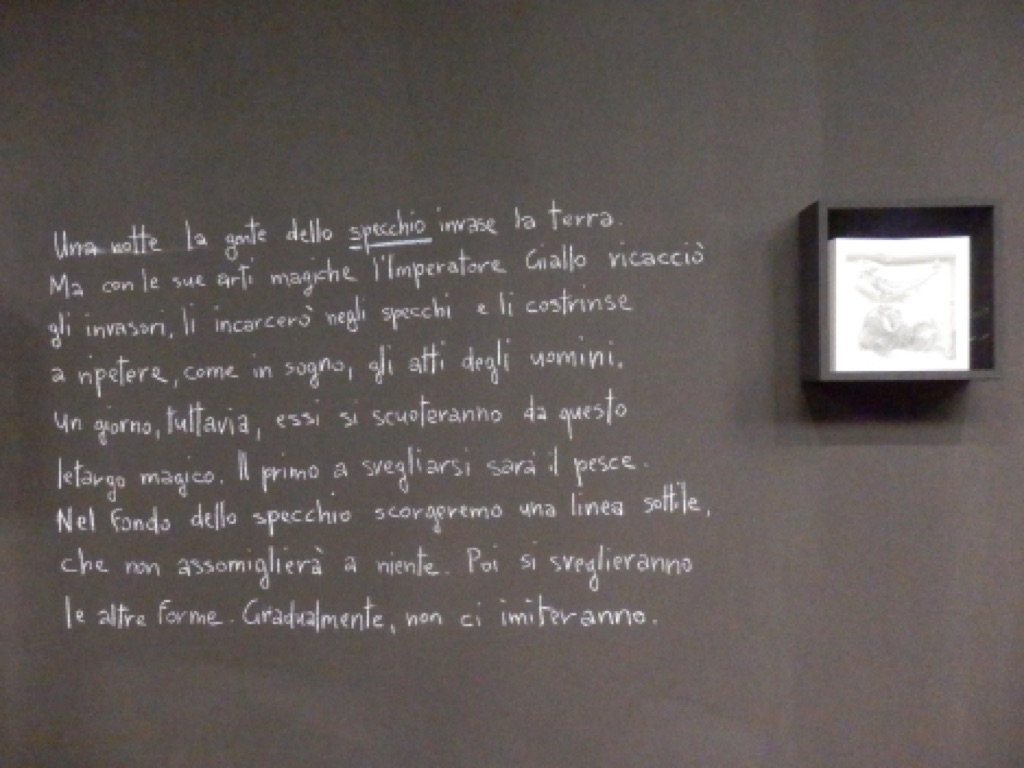 Una notte la gente dello specchio invase la terra.
Ma con le sue arti magiche l'Imperatore Giallo ricacciò
gli invasori, li incarcerò negli specchi e li costrinse
a ripetere, come in sogno, gli atti degli uomini.
Un giorno, tuttavia, essi si scuoteranno da questo
letargo magico. Il primo a svegliarsi sarà il pesce.
Nel fondo dello specchio scorgeremo una linea sottile,
che non assomiglierà a niente. Poi si sveglieranno
le altre forme. Gradualmente, non ci imiteranno.